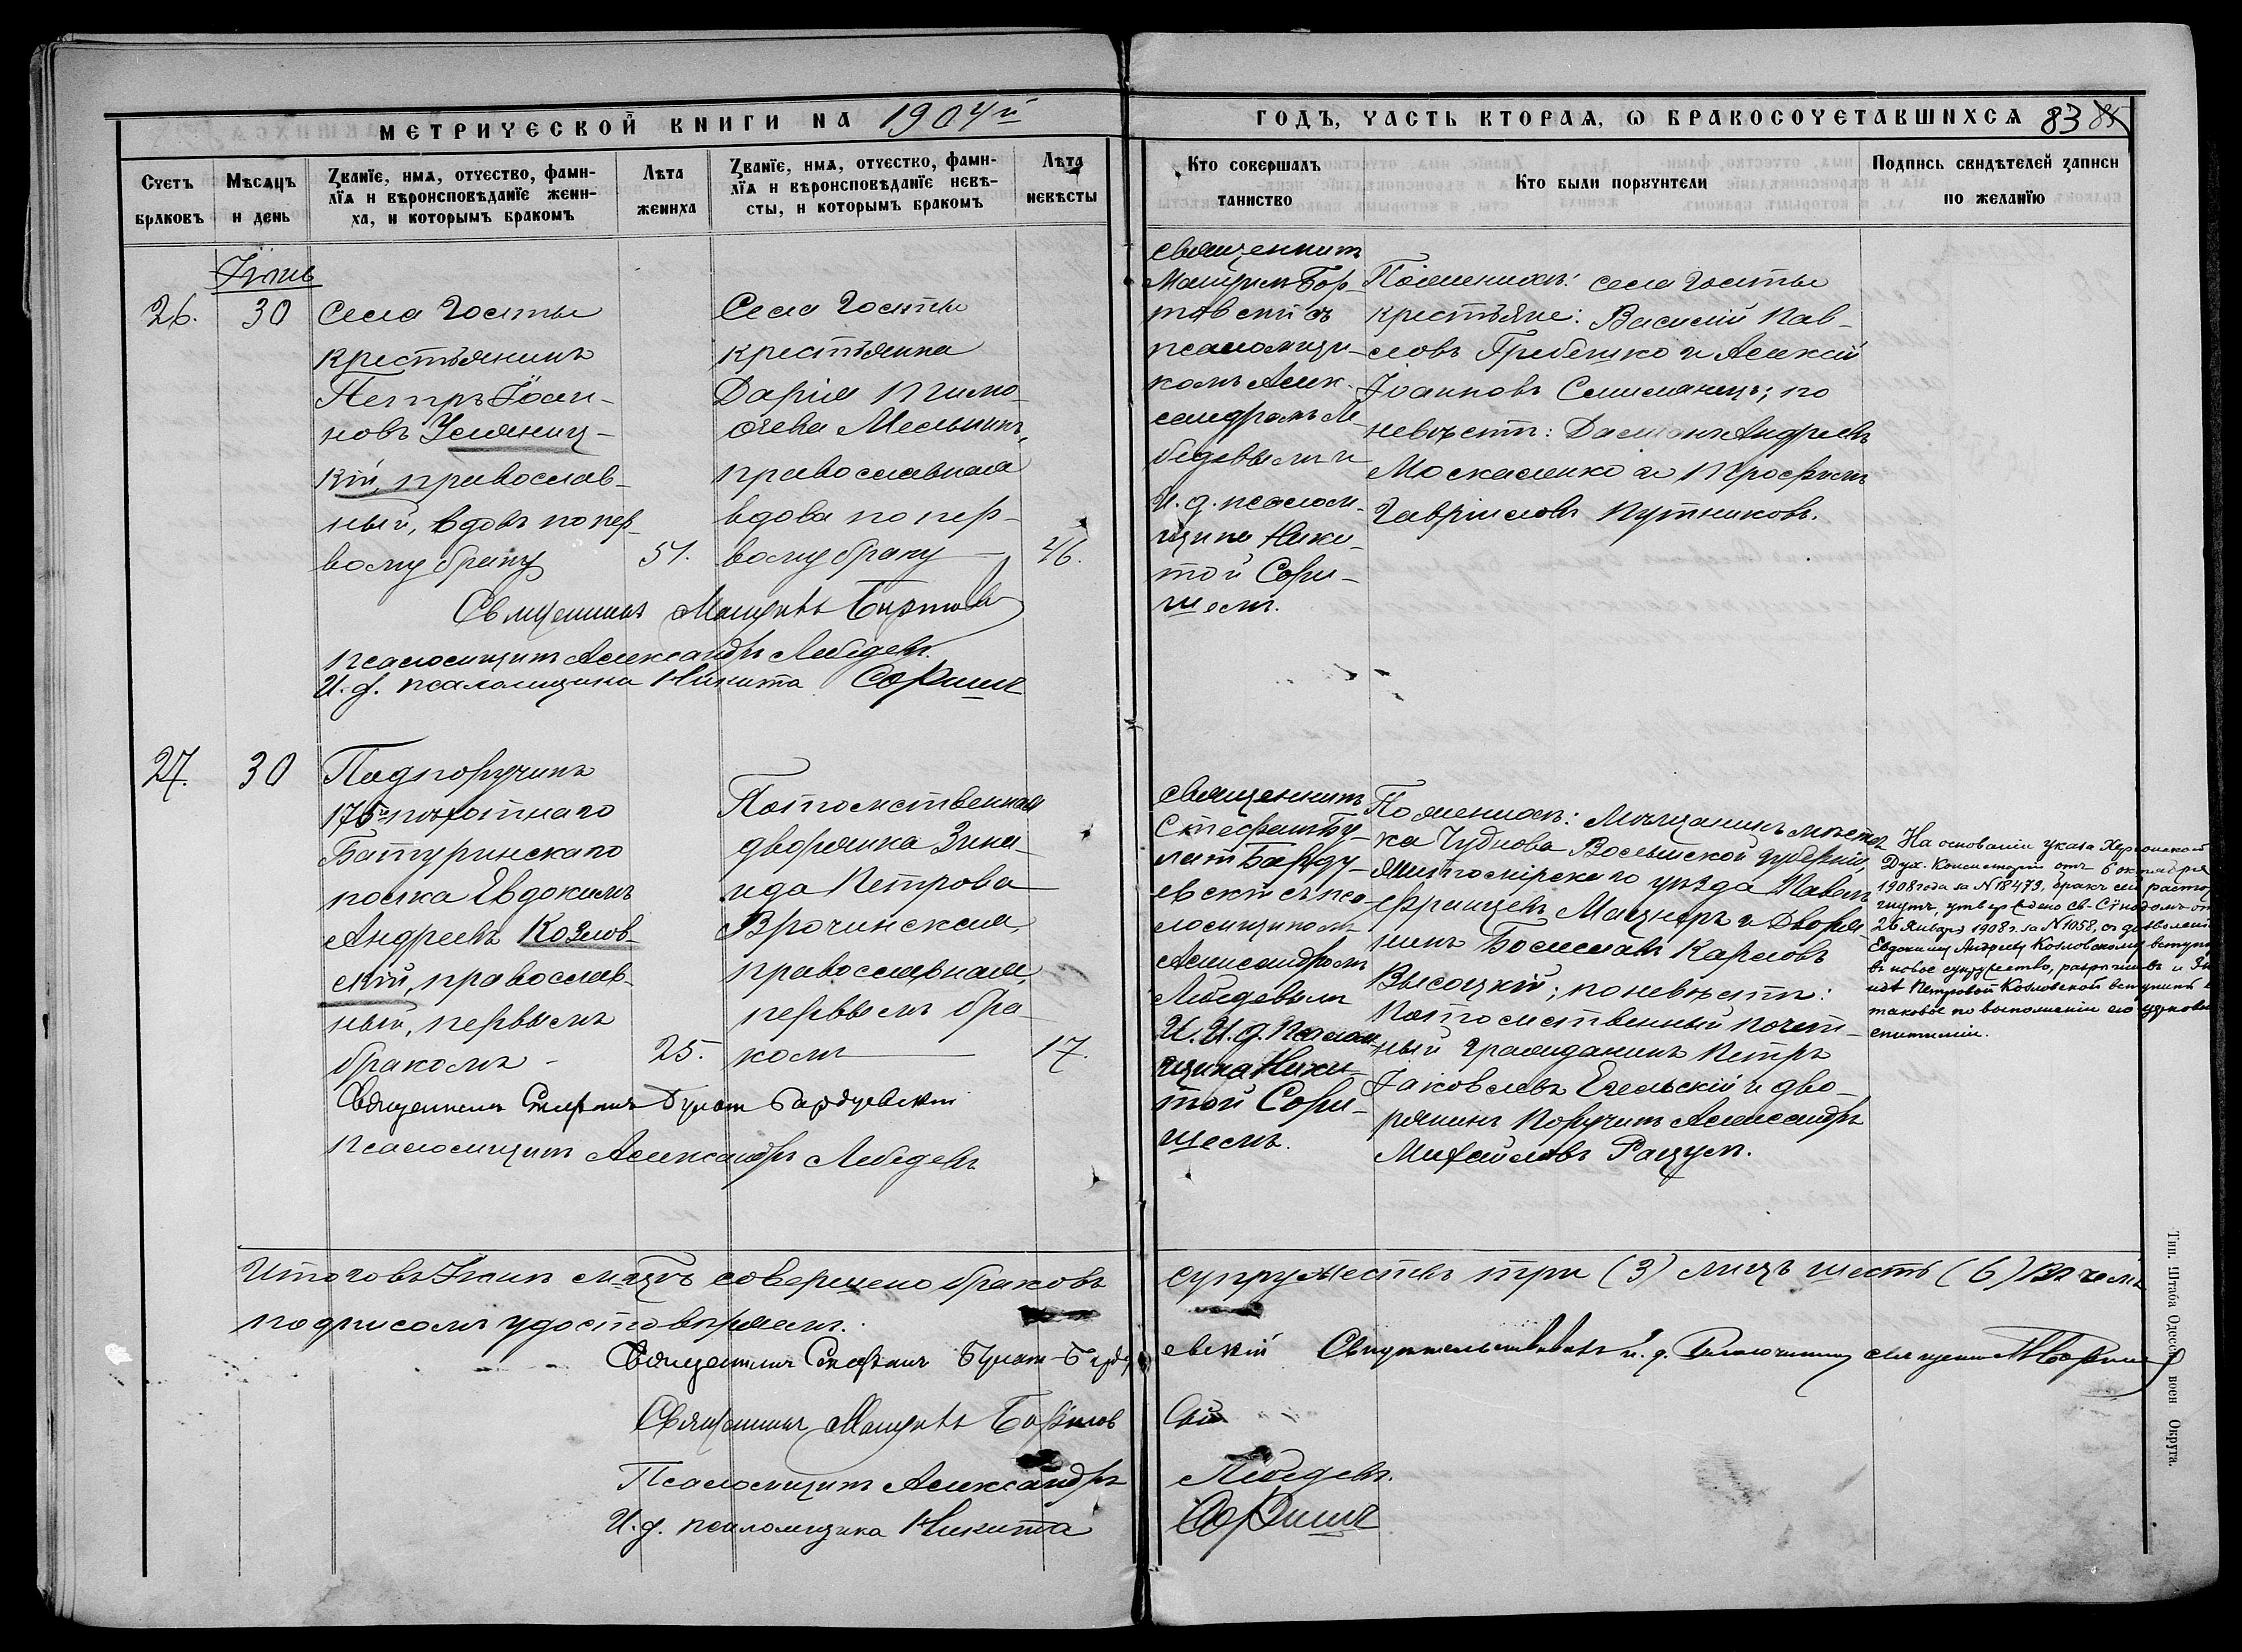 МЕТРИЧЕСКОЙ КНИГИ НА 1904й
ГОДЪ, ЧАСТЬ ВТОРАЯ, Ѡ БРАКОСОЧЕТАВШИХСЯ 83 85
Счетъ браковъ
Мѣсяцъ и день
Званїе, имя, отчество, фами-
лїя и вѣроисповѣданїе жени-
ха, и которымъ бракомъ
Лѣта
жениха
Званїе, имя, отчество, фами-
лїя и вѣроисповѣданїе невѣ-
сты, и которымъ бракомъ
Лѣта
невѣсты
Кто совершалъ
таинство
Кто были поручители
Подпись свидѣтелей записи
по желанїю
Іюнь
26.
30
Села Госиты
крестьянинъ
Петръ Іоан-
новъ
кій, православ-
ный, вдовъ по пер-
вому браку
51.
Села Госиты
крестьянка
Дарія
Мельникъ,
православная
вдова по пер-
вому браку
46.
Священникъ
псаломщи-
комъ Алек-
сандромъ Ле-
бедевымъ и
И. д. псалом-
щика Ники-
той Сори-
чемъ.
По женихѣ: села Госиты
крестьяне: Василій Пав-
ловъ Гребешко и Алексій
Іоанновъ по
невѣстѣ: Андреевъ
Москаленко и
Гавріиловъ Путниковъ.
Священникъ
Псаломщикъ Александръ Лебедевъ.
И. д. псаломщика Никита
27.
30
Подпоручикъ
175й пѣхотнаго
Батуринскаго
полка Евдокимъ
Андреевъ Козлов-
скій, православ-
ный, первымъ
бракомъ
25.
Потомственная
дворянка Зина-
ида Петрова
Врочинская,
православная,
первымъ бра-
комъ
17.
Священникъ
Стефанъ Бу-
латъ Барду-
евскій съ пса-
ломщикомъ
Александромъ
Лебедевымъ
И. И. д. Псалом-
щика Ники-
той Сори-
чемъ.
По женихѣ: Мѣщанинъ мѣстеч-
ка Чуднова Волынской губерніи,
Житомірскаго уѣзда Павелъ
Францевъ и Дворя-
нинъ Болеславъ Карловъ
Высоцкій; по невѣстѣ:
Потомственный почет-
ный гражданинъ Петръ
Іаковлевъ и дво-
рянинъ Поручикъ Александръ
Михайловъ
На основаніи указа Херсонской
Дух. Консисторіи отъ 6 октября
1908 года за № 18479, бракъ сей растор-
гнутъ, утверждено Св. Сѵнодомъ от
26 Января 1908 г. за № 1058, съ дозволені
Евдокиму Андрееву Козловскому вступи
въ новое супружество, и Зи
Петровой Козловской вступить
таковое по выполненіи ею церковн
епитиміи.
Священникъ Стефанъ Булатъ Бардуевскій
Псаломщикъ Александръ Лебедевъ
Итого въ Іюнѣ м-цѣ совершено браковъ супружествъ три (3) лицъ шесть (6) въ чемъ
подписомъ удостовѣряемъ.
Священникъ Стефанъ Булатъ-Барду евскій Свидѣтельствовалъ и. д. Благочиннаго
Священникъ
Псаломщикъ Александръ Лебедевъ.
И. д. псаломщика Никита
Тип. Штаба Одесск. воен Округа.